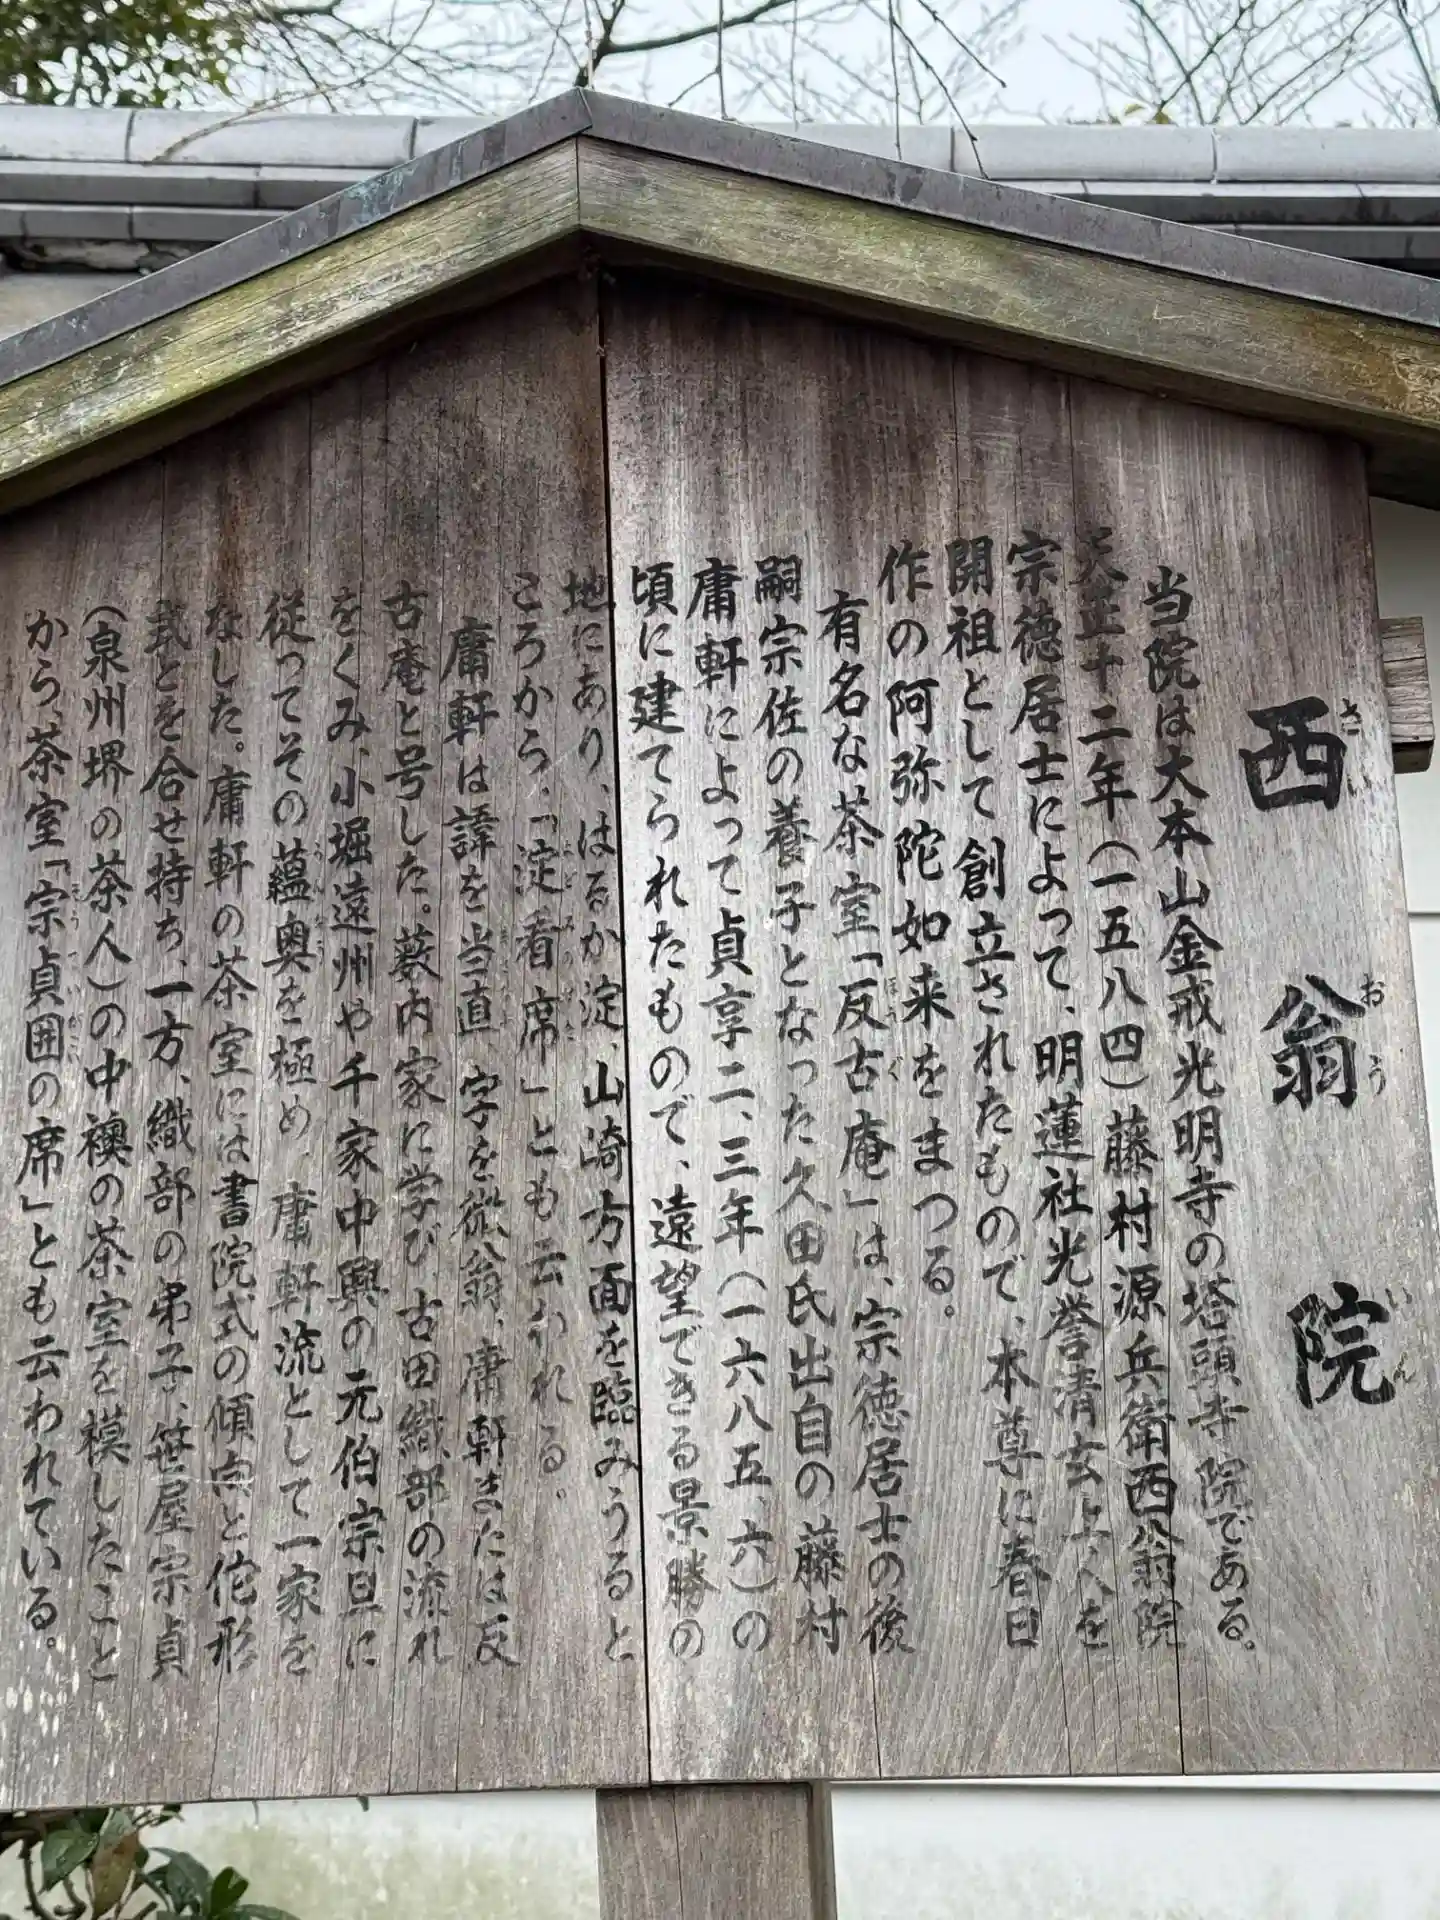 西翁院
さいおういん
当院は大本山金戒光明寺の塔頭寺院である。
天正十二年（一五八四）藤村源兵衛西翁院
宗徳居士によって、明蓮社光誉清玄上人を
開祖として創立されたもので、本尊に春日
作の阿弥陀如来をまつる。
有名な茶室「反古庵」は、宗徳居士の後
ほうぐ
嗣宗佐の養子となった久田氏出自の藤村
庸軒によって貞享二、三年（一六八五、六）の
頃に建てられたもので、遠望できる景勝の
地にあり、はるか淀、山崎方面を臨みうると
ころから、「淀看席」とも云われる。
よどみのせき
庸軒は諱を当直、字を微翁、庸軒または反
古庵と号した。薮内家に学び、古田織部の流れ
をくみ、小堀遠州や千家中興の元伯宗旦に
従ってその蘊奥を極め、庸軒流として一家を
うんおう
なした。庸軒の茶室には書院式の傾向と侘形
式とを合せ持ち、一方、織部の弟子、笹屋宗貞
（泉州堺の茶人）の中襖の茶室を模したこと
から、茶室「宗貞囲の席」とも云われている。
そうていがこい